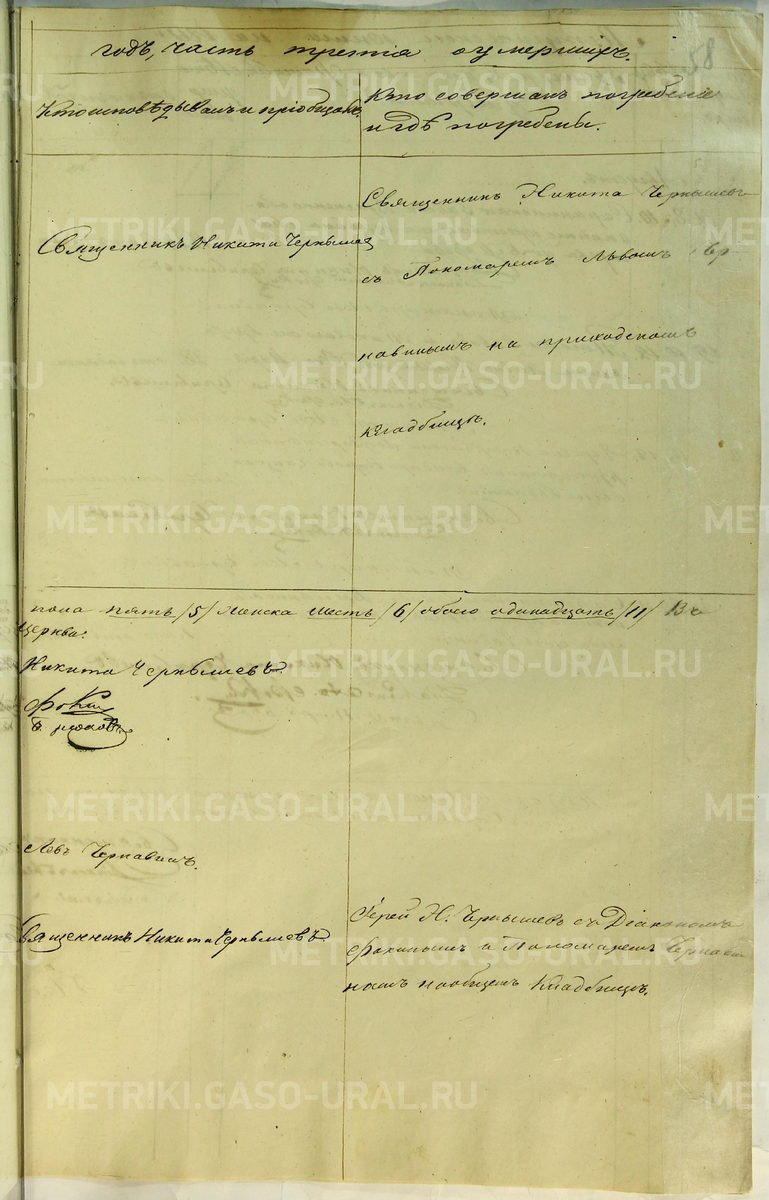 годъ, часть третія оумершихъ.
58
Кто исповѣдывалъ и пріобщалъ.
Кто совершалъ погребеніе
и гдѣ погребены.
Священникъ Никита Чернышев
съ Пономаремъ Львомъ Чер-
Священникъ Никита Чернышев
навинымъ на приходскомъ
кладбищѣ.
пола пять /5/ женска шесть /6/ обоего одинадцать /11/ Въ
Церкви:
Никита Чернышевъ
Левъ Чернавинъ.
Священникъ Никита Чернышевъ
Іерей Н. Чернышевъ съ Діакономъ
Фокинымъ и Пономаремъ Чернави
нымъ на общемъ Кладбищѣ.
METRIKI.GASO-URAL.RU